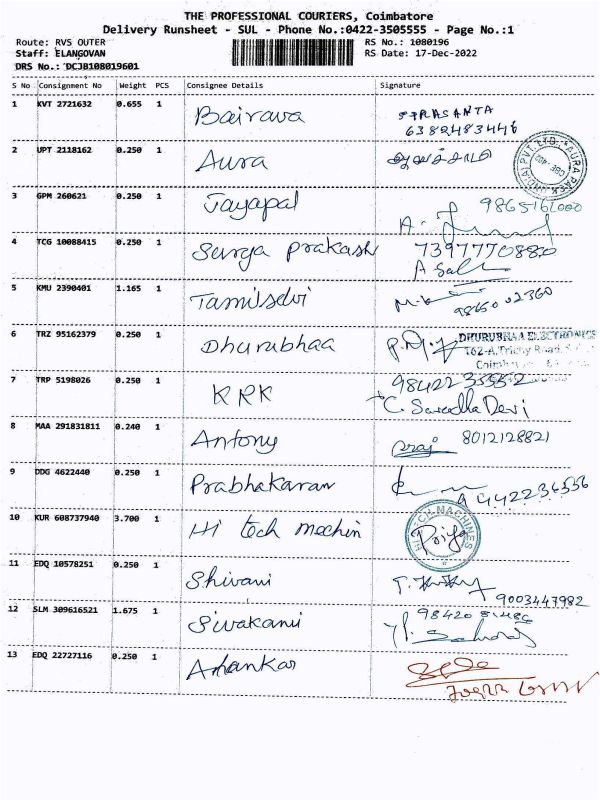 THE PROFESSIONAL COURIERS, Coimbatore
Delivery Runsheet - SUL - Phone No.:0422-3505555 - Page No.:1
Route: RVS OUTER
RS No.: 1080196
Staff: ELANGOVAN
RS Date: 17-Dec-2022
DRS No.: DCJB108019601
S No Consignment No Weight PCS Consignee Details Signature
1 KVT 2721632 0.655 1 Bairava
6382483446
2 UPT 2118162 0.250 1 Aura
INDIA PVT. LTD. AURA PACK
3 GPM 260621 0.250 1 Jayapal
4 TCG 10088415 0.250 1 Surya prakash 7397770880
5 KMU 2390401 1.165 1 Tamilselvi
6 TRZ 95162379 0.250 1 Dhurubhaa
DHURUBHAA ELECTRONICS
162-A, Trichy Road,
7 TRP 5198026 0.250 1 KRK
C. Saradha Devi
8 MAA 291831811 0.240 1 Antony 8012128821
9 DDG 4622440 0.250 1 Prabhakaran
10 KUR 608737940 3.700 1 Hi tech mechin
HI TECH MACHINES
Priya
11 EDQ 10578251 0.250 1 Shivani
9003447982
12 SLM 309616521 1.675 1 Sivakami
13 EDQ 22727116 0.250 1